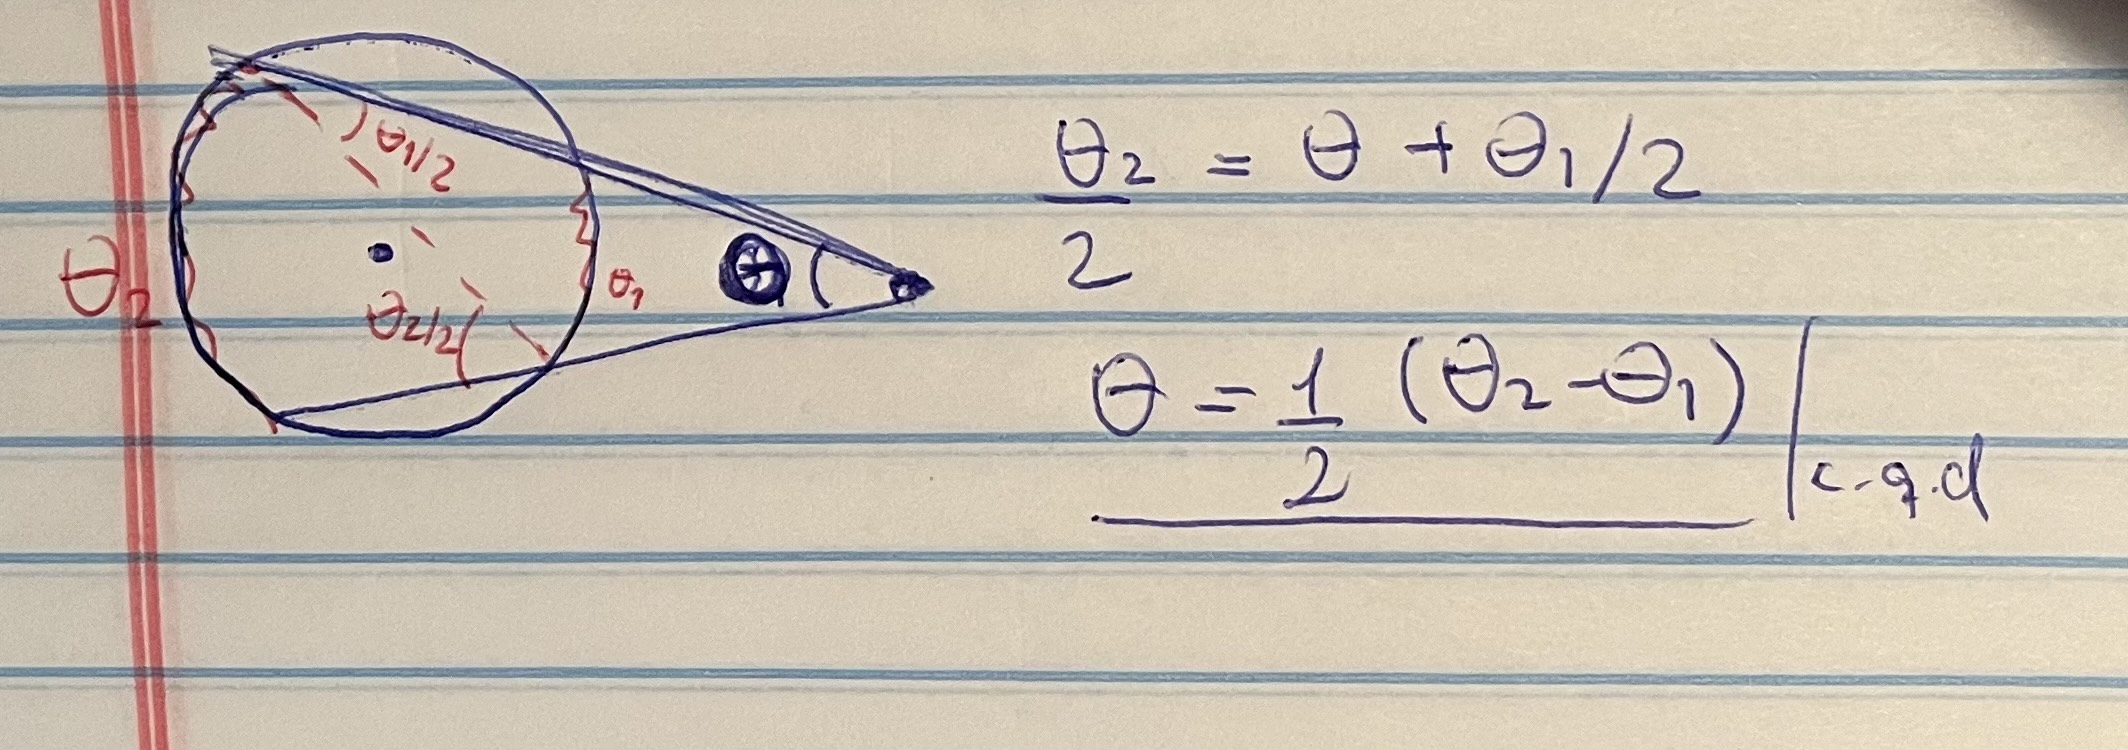 θ1/2
θ2
θ2/2
θ1
θ
θ2/2 = θ + θ1/2
θ = 1/2 (θ2 - θ1)
c.q.d